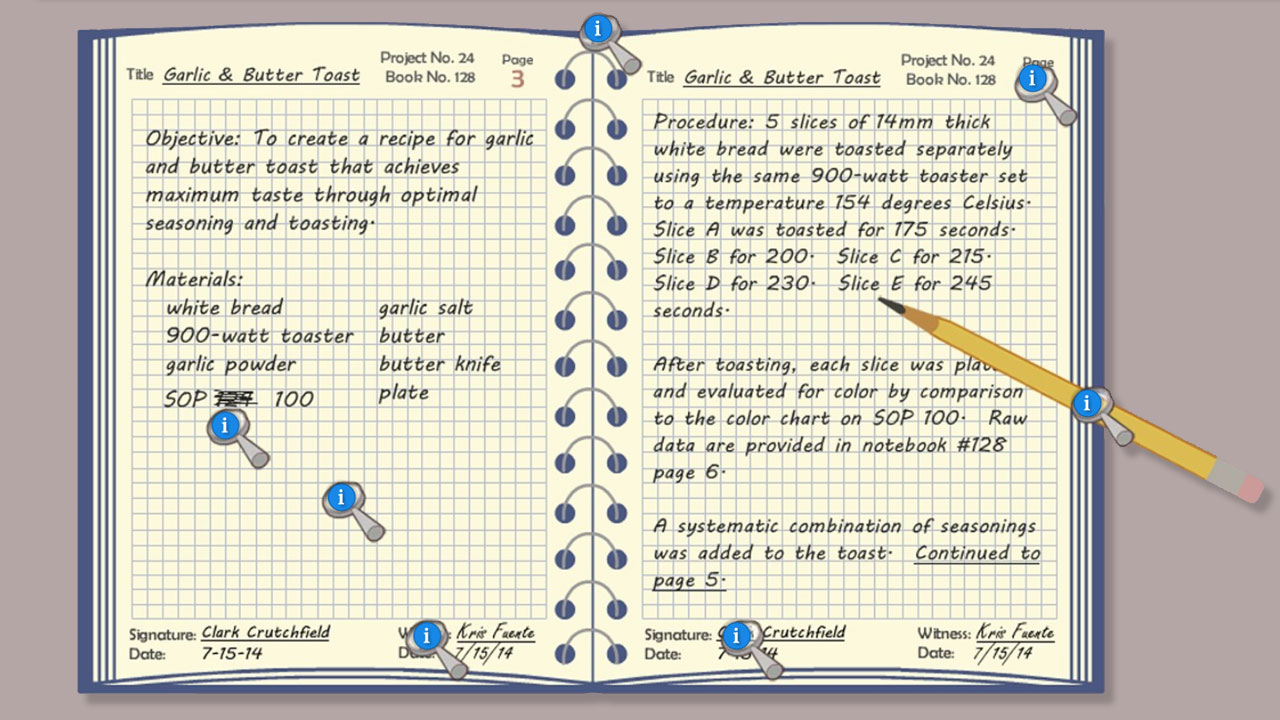 Title Garlic & Butter Toast
Project No. 24
Book No. 128
Page
3
Objective: To create a recipe for garlic
and butter toast that achieves
maximum taste through optimal
seasoning and toasting.
Materials:
white bread
900-watt toaster
garlic powder
SOP 100
garlic salt
butter
butter knife
plate
Signature: Clark Crutchfield
Date: 7-15-14
Kris Fuente
7/15/14
Title Garlic & Butter Toast
Project No. 24
Book No. 128
Page
Procedure: 5 slices of 14mm thick
white bread were toasted separately
using the same 900-watt toaster set
to a temperature 154 degrees Celsius.
Slice A was toasted for 175 seconds.
Slice B for 200. Slice C for 215.
Slice D for 230. Slice E for 245
seconds.
After toasting, each slice was
and evaluated for color by comparison
to the color chart on SOP 100. Raw
data are provided in notebook #128
page 6.
A systematic combination of seasonings
was added to the toast. Continued to
page 5.
Signature: Crutchfield
Date:
Witness: Kris Fuente
Date: 7/15/14